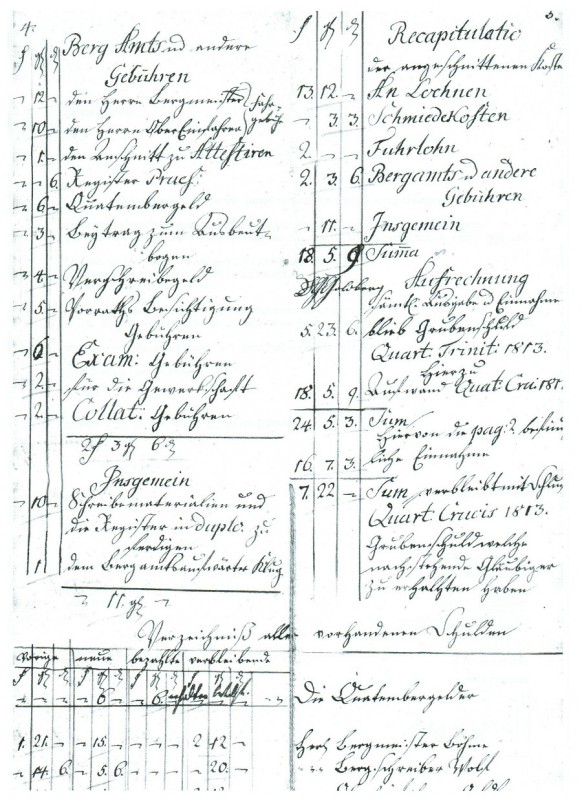 4.
f gr d
Berg Amts und andere
Gebühren
- 12 - den Herrn Bergmeister
Fahrgebühr
- 10 - den Herrn OberEinfahrer
- 1. - den Anschnitt zu Attestiren
- - 6. Register Praes:
- 6 - Quatembergeld
- 3 - Beytrag zum Ausbeutbogen
- 4 - Verschreibegeld
- 5. - Vorraths Besichtigung
Gebühren
- 6 - Exam: Gebühren
- 2 - für die Gewerkschaft
- 2 - Collat: Gebühren
2 f 3 gr 6 d
Insgemein
- 10 - Schreibematerialien und
die Register in duplo zu
fertigen
1 dem Bergamtsaufwärter Klug
- 11. gr -
5.
f gr d
Recapitulatio
der angeschnittenen Koste
13. 12. - An Loehnen
- 3. 3. Schmiedekosten
2. - - Fuhrlohn
2. 3. 6. Bergamts und andere
Gebühren
- 11. - Insgemein
18. 5. 9. Summa
Aufrechnung
sämtl. Ausgabe und Einnahme
5. 23. 6. blieb Grubenschuld
Quart: Trinit: 1813.
Hierzu
18. 5. 9. Aufwand Quat: Cru: 181.
24. 5. 3. Sum
Hiervon die pag: 2. befind
16. 7. 3. liche Einnahme
7. 22 - Sum verbleibt mit Schluß
Quart: Crucis 1813.
Grubenschuld welche
nachstehende Gläubiger
zu erhalten haben
Verzeichniß aller vorhandenen Schulden
vorige neue bezahlte verbleibende
f gr d f gr d f gr d f gr d
- - - - 6 - - 6. - - Die Quatembergelder
1. 21. - - 15. - - - - 2 12 - Herr Bergmeister Böhme
- 14. 6. - 5. 6. - - - - 20. - Bergschreiber Wolf